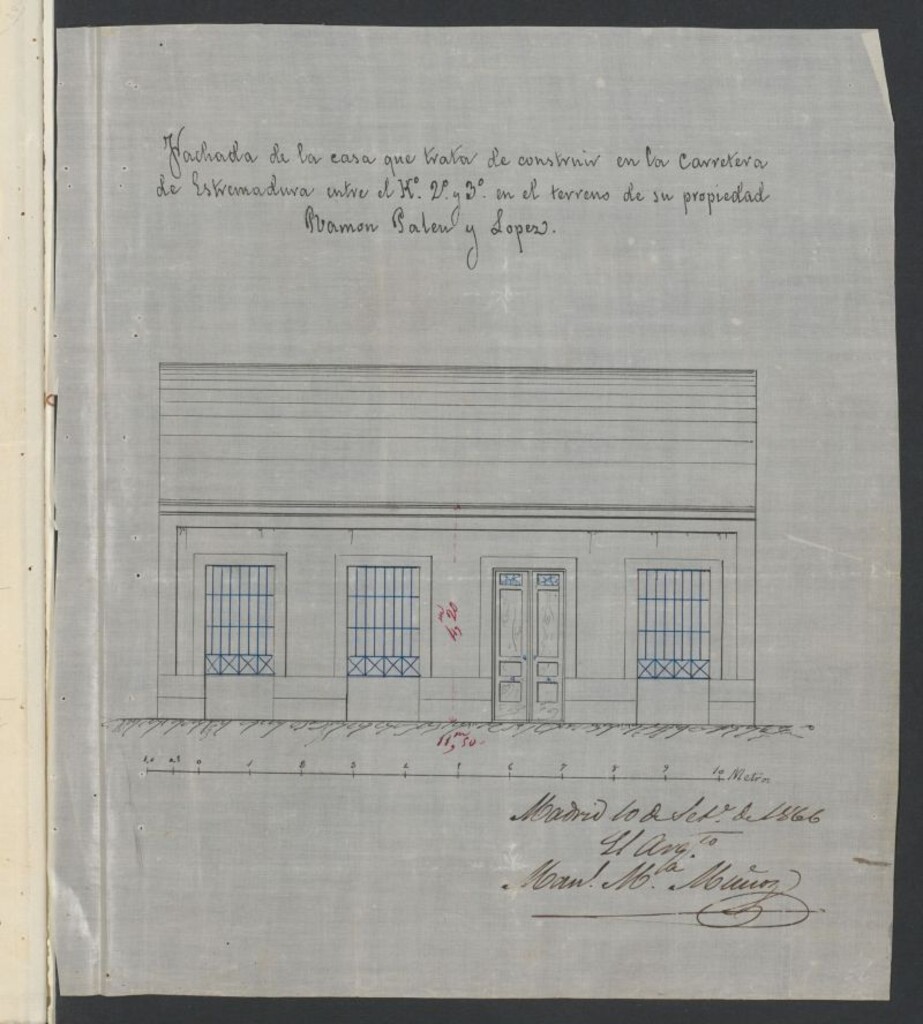 Fachada de la casa que trata de construir en la Carretera
de Estremadura entre el K.º 2º y 3º en el terreno de su propiedad
Ramon Palen y Lopez.
4,m20
11,m50
1,0 0,5 0 1 2 3 4 5 6 7 8 9 10 Metros
Madrid 10 de Set.e de 1866
El Arq.to
Man.l M.a Muñoz